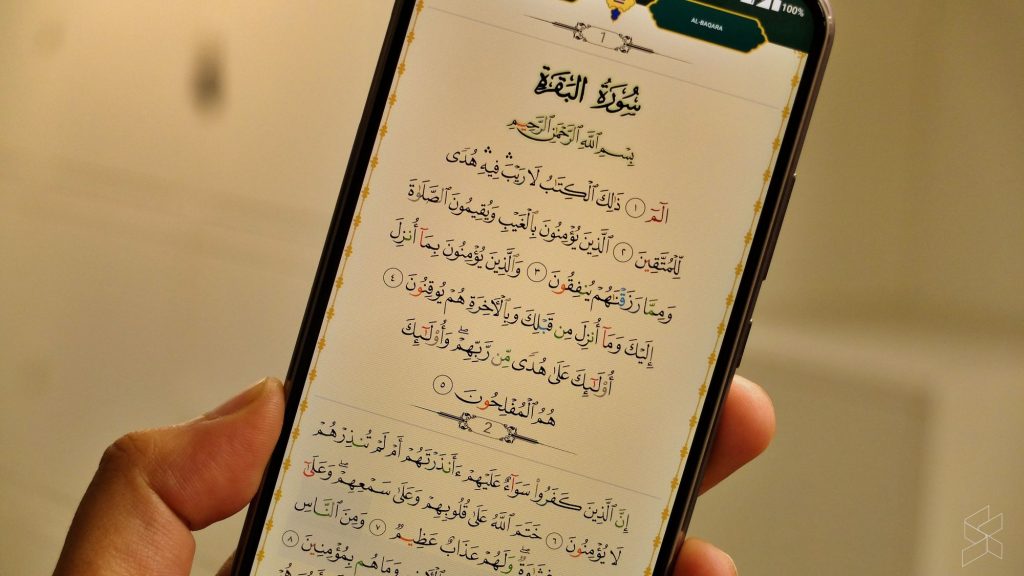 100%
AL-BAQARA
1
سُورَةُ الْبَقَرَةِ
بِسْمِ ٱللَّهِ ٱلرَّحْمَٰنِ ٱلرَّحِيمِ
الٓمٓ ١ ذَٰلِكَ ٱلْكِتَٰبُ لَا رَيْبَ ۛ فِيهِ ۛ هُدًى
لِّلْمُتَّقِينَ ٢ ٱلَّذِينَ يُؤْمِنُونَ بِٱلْغَيْبِ وَيُقِيمُونَ ٱلصَّلَوٰةَ
وَمِمَّا رَزَقْنَٰهُمْ يُنفِقُونَ ٣ وَٱلَّذِينَ يُؤْمِنُونَ بِمَآ أُنزِلَ
إِلَيْكَ وَمَآ أُنزِلَ مِن قَبْلِكَ وَبِٱلْءَاخِرَةِ هُمْ يُوقِنُونَ ٤
أُو۟لَٰٓئِكَ عَلَىٰ هُدًى مِّن رَّبِّهِمْ ۖ وَأُو۟لَٰٓئِكَ
هُمُ ٱلْمُفْلِحُونَ ٥
2
إِنَّ ٱلَّذِينَ كَفَرُوا۟ سَوَآءٌ عَلَيْهِمْ ءَأَنذَرْتَهُمْ أَمْ لَمْ تُنذِرْهُمْ
لَا يُؤْمِنُونَ ٦ خَتَمَ ٱللَّهُ عَلَىٰ قُلُوبِهِمْ وَعَلَىٰ سَمْعِهِمْ ۖ وَعَلَىٰٓ
غِشَٰوَةٌ ۖ وَلَهُمْ عَذَابٌ عَظِيمٌ ٧ وَمِنَ ٱلنَّاسِ
وَمَا هُم بِمُؤْمِنِينَ ٨